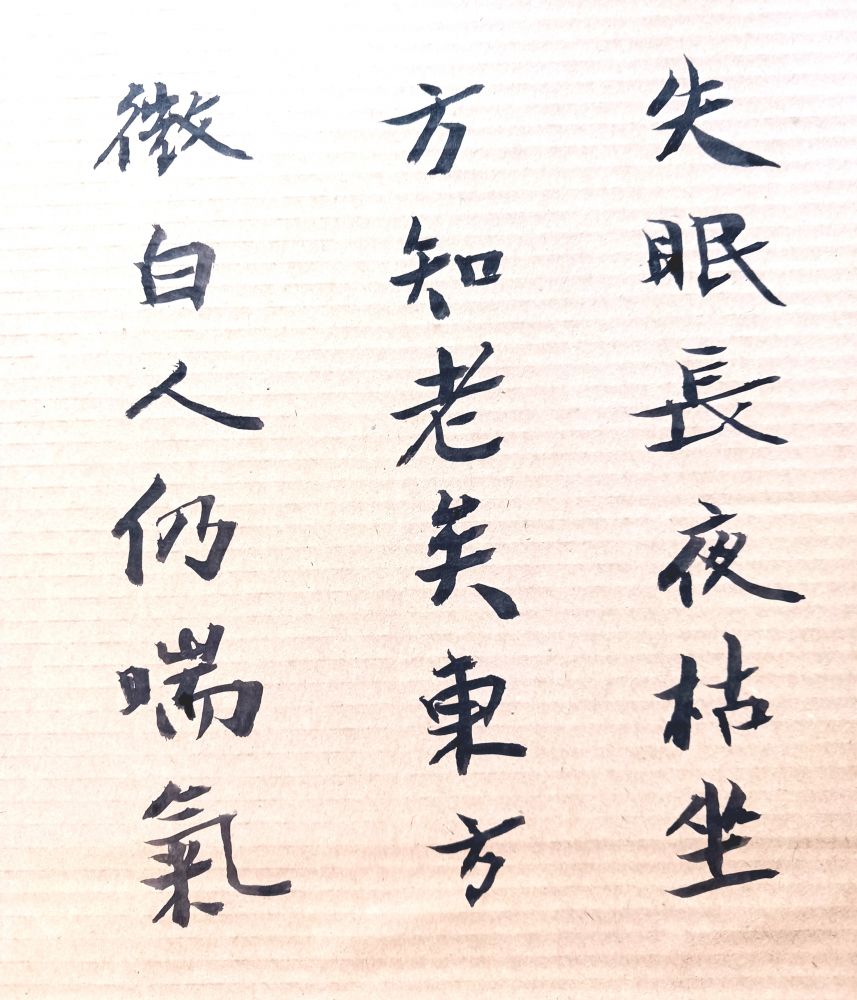 失眠長夜枯坐
方知老矣東方
微白人仍喘氣